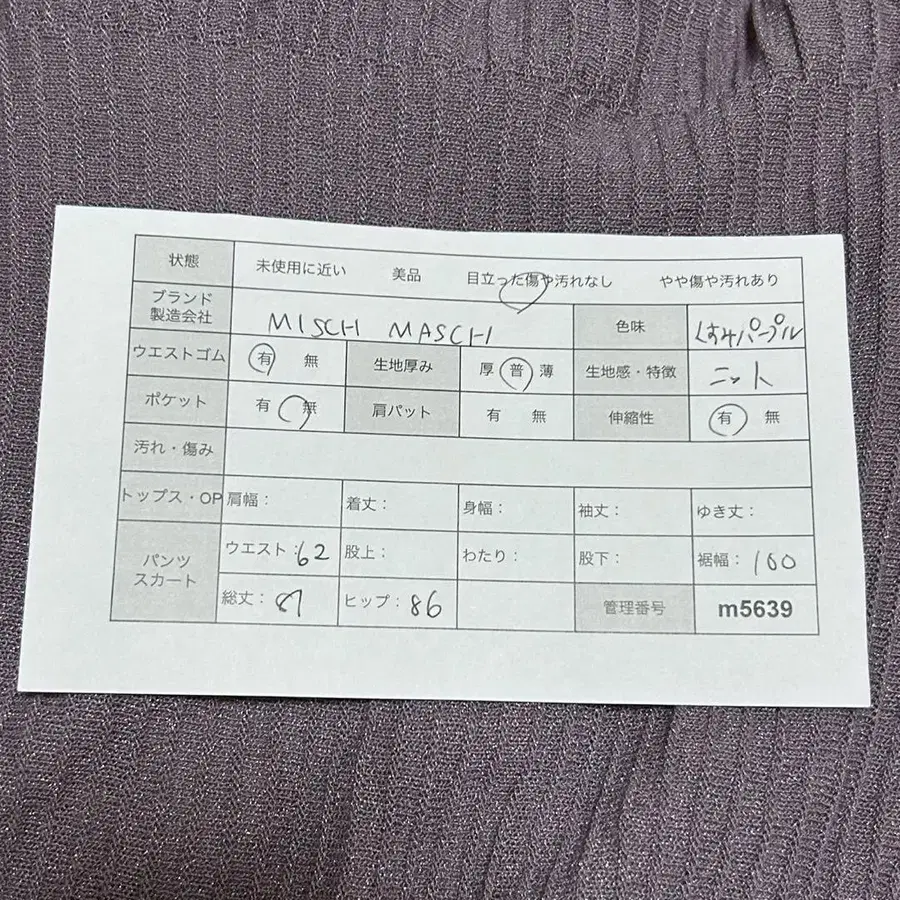 状態 未使用に近い 美品 目立った傷や汚れなし やや傷や汚れあり
ブランド 製造会社 MISCH MASCH 色味 くすみパープル
ウエストゴム 有 無 生地厚み 厚 普 薄 生地感・特徴 ニット
ポケット 有 無 肩パット 有 無 伸縮性 有 無
汚れ・傷み
トップス・OP 肩幅： 着丈： 身幅： 袖丈： ゆき丈：
パンツ スカート ウエスト：62 股上： わたり： 股下： 裾幅：100
総丈：87 ヒップ：86 管理番号 m5639